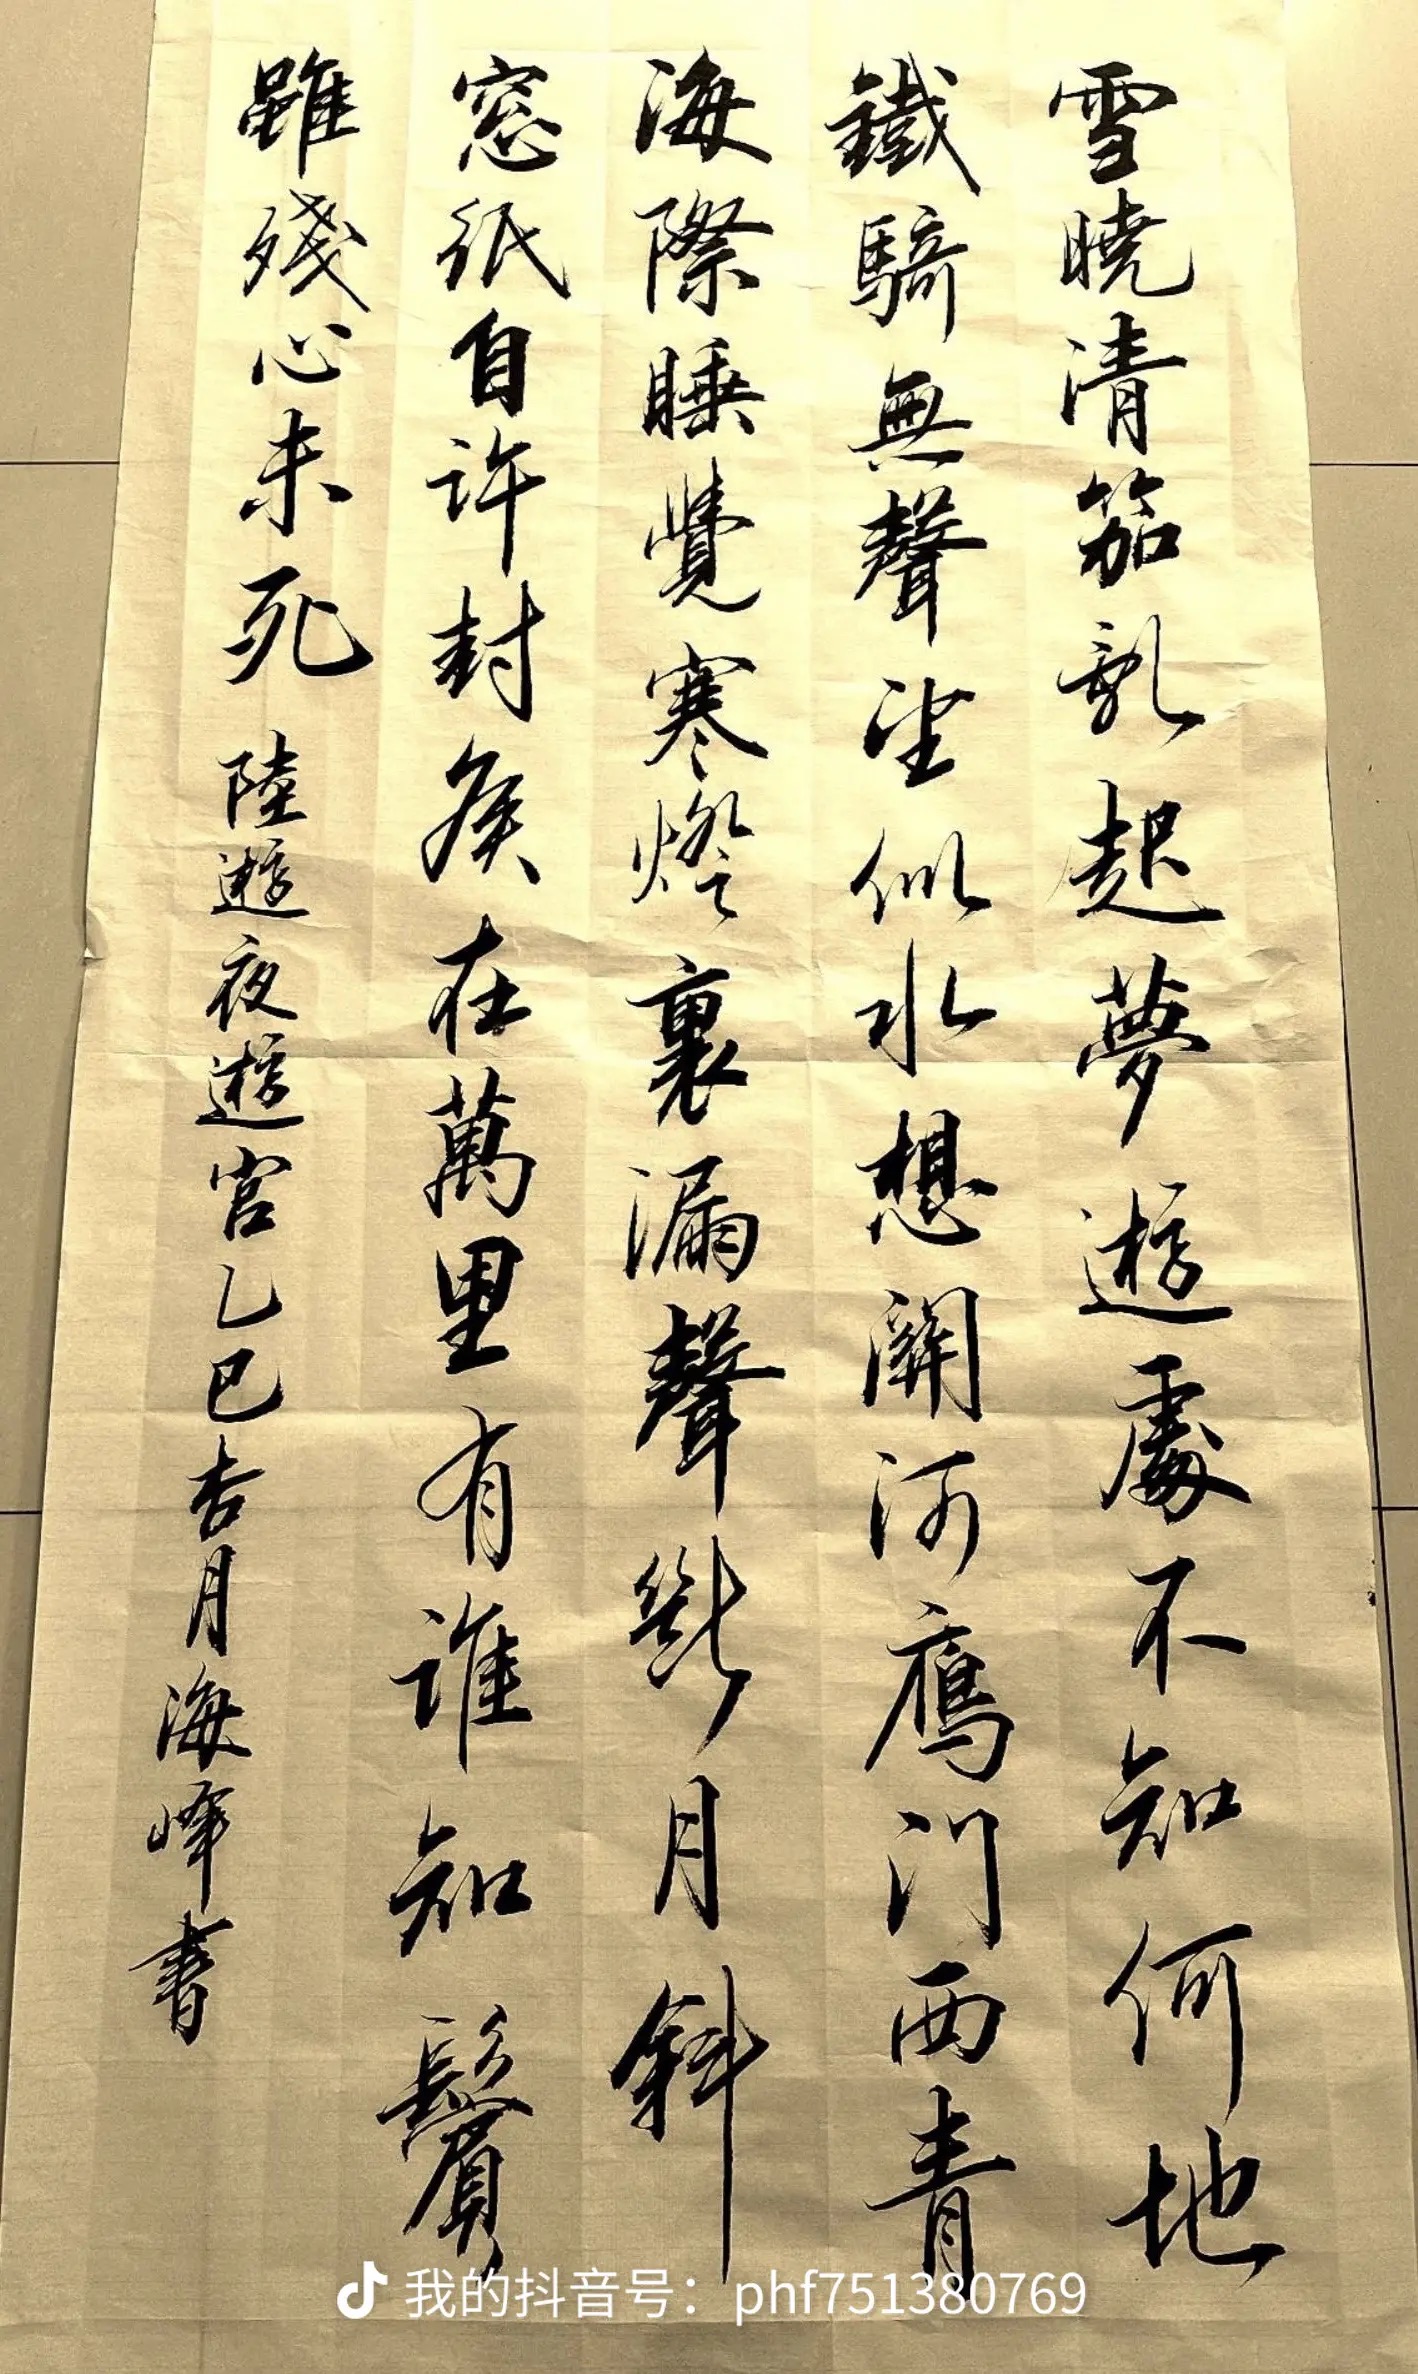 雪曉清笳亂起夢遊處不知何地
鐵騎無聲望似水想關河鴈門西青
海際睡覺寒燈裏漏聲斷月斜
窓紙自許封矦在萬里有誰知鬢
雖殘心未死 陸遊夜遊宮乙巳杏月海峰書
我的抖音号：phf751380769